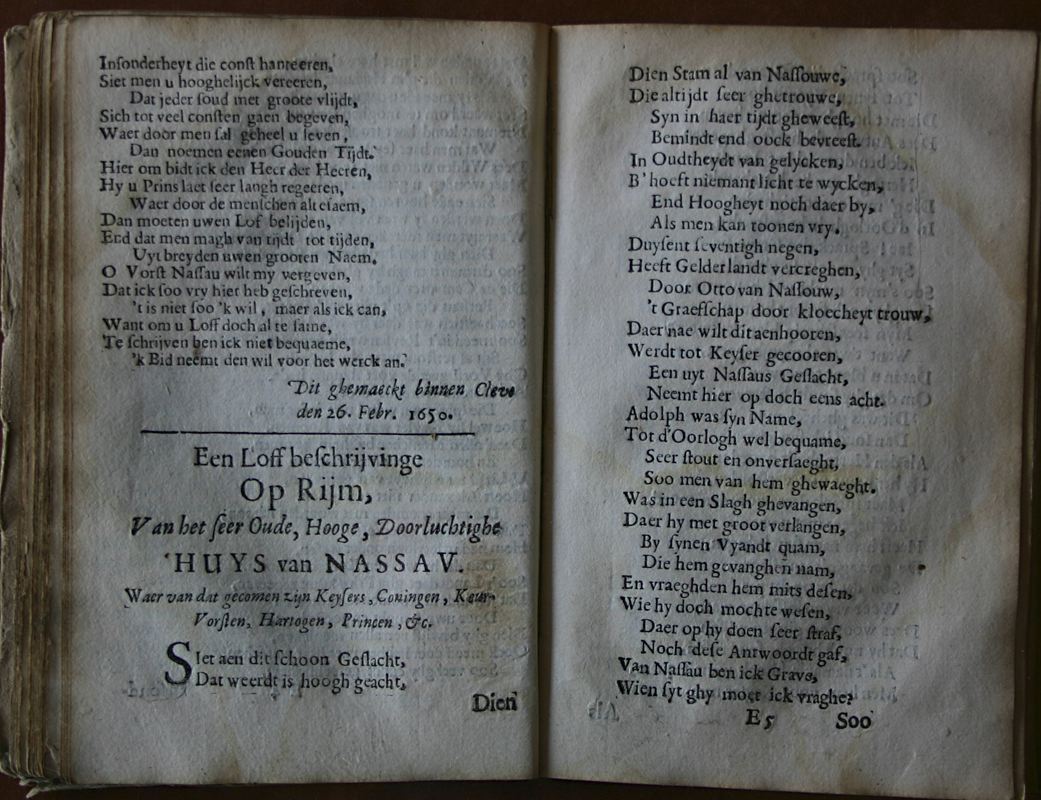 Insonderheyt die const hanteeren,
Siet men u hooghelijck vereeren,
Dat jeder soud met groote vlijdt,
Sich tot veel consten gaen begeven,
Waer door men sal geheel u leven,
Dan noemen eenen Gouden Tijdt.
Hier om bidt ick den Heer der Heeren,
Hy u Prins laet seer langh regeeren,
Waer door de menschen altesaem,
Dan moeten uwen Lof belijden,
End dat men magh van tijdt tot tijden,
Uyt breyden uwen grooten Naem.
O Vorst Nassau wilt my vergeven,
Dat ick soo vry hier heb geschreven,
't is niet soo 'k wil, maer als ick can,
Want om u Loff doch al te same,
Te schrijven ben ick niet bequaeme,
'k Bid neemt den wil voor het werck an.
Dit ghemaeckt binnen Cleve
den 26. Febr. 1650.
Een Loff beschrijvinge
Op Rijm,
Van het seer Oude, Hooge, Doorluchtighe
'HUYS van NASSAV.
Waer van dat gecomen zijn Keysers, Coningen, Keur-
Vorsten, Hartogen, Princen, &c.
SIet aen dit schoon Geslacht,
Dat weerdt is hoogh geacht,
Dien
Dien Stam al van Nassouwe,
Die altijdt seer ghetrouwe,
Syn in haer tijdt gheweest,
Bemindt end oock bevreest.
In Oudtheydt van gelycken,
B'hoeft niemant licht te wycken,
End Hoogheyt noch daer by,
Als men kan toonen vry.
Duysent seventigh negen,
Heeft Gelderlandt vercreghen,
Door Otto van Nassouw,
't Graefschap door kloecheyt trouw,
Daer nae wilt dit aenhooren,
Werdt tot Keyser gecooren,
Een uyt Nassaus Geslacht,
Neemt hier op doch eens acht.
Adolph was syn Name,
Tot d'Oorlogh wel bequame,
Seer stout en onversaeght,
Soo men van hem ghewaeght.
Was in een Slagh ghevangen,
Daer hy met groot verlangen,
By synen Vyandt quam,
Die hem gevanghen nam,
En vraeghden hem mits desen,
Wie hy doch mochte wesen,
Daer op hy doen seer straf,
Noch dese Antwoordt gaf,
Van Nassau ben ick Grave,
Wien syt ghy moet ick vraghe?
E5 Soo